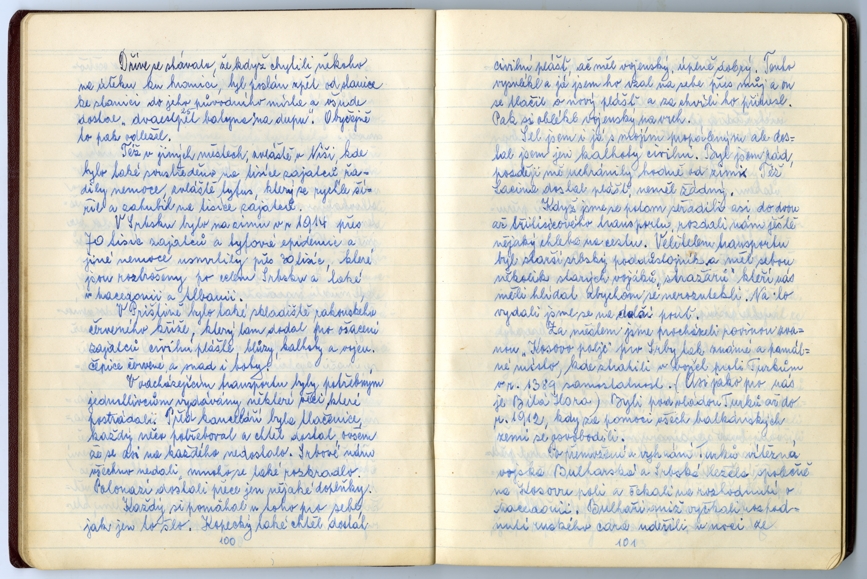 Dříve se stávalo, že když chytili někoho
na útěku ku hranici, byl poslán zpět od stanice
ke stanici do jeho původního místa a všude
dostal „dvaestpět batyna na dupu“. Obyčejně
to pak odležel.
Též v jiných městech, zvláště v Niši, kde
bylo také soustředěno na tisíce zajatců řá-
dily nemoce, zvláště tyfus, který se rychle ší-
řil a zahubil na tisíce zajatců.
V Srbsku bylo na zimu v r. 1914 přes
70 tisíc zajatců a tyfové epidemie a
jiné nemoce usmrtily přes 30 tisíc, které
jsou roztroušeny po celém Srbsku a také
v Macedonii a Albanii.
V Prištině bylo také skladiště rakouského
červeného kříže, který tam dodal pro ošacení
zajatců civilní pláště, blůzy, kalhoty a vojen.
čepice červené a prádlo i boty.
V odcházejícím transportu byly potřebným
jednotlivcům vydávány některé věci které
postrádali. Před kanceláří byla tlačenice,
každý něco potřeboval a chtěl dostat, ovšem
že se dvě na každého nedostalo. Srbové nám
všechno nedali, mnoho se také rozkradlo.
Polonazí dostali přece jen nějaké doplňky.
Každý si pomáhal u toho pro sebe
jak jen to šlo. Kopecký také chtěl dostat
100
civilní plášť, ač měl vojenský, úplně dobrý. Tento
vysvlékl a já jsem ho vzal na sebe přes můj a on
se tlačil o nový plášť a za chvíli ho přinesl.
Pak si oblékl vojenský na vrch.
Šel jsem i já s mojím propoleným ale dos-
tal jsem jen kalhoty civilní. Byl jsem rád,
později mě uchránily hodně od zimy. Též
Lacina dostal plášť, neměl žádný.
Když jsme se potom seřadili asi do dvou
až třitisícového transportu, rozdali nám ještě
nějaký chleba na cestu. Velitelem transportu
byl starší srbský poddůstojník a měl sebou
několik starých vojáků „stražarů“ kteří nás
měli hlídat abychom se nerozutekli. Na to
vydali jsme se na další pouť.
Za městem jsme procházeli rovinou zva-
nou „Kosovo polje“ pro Srby tak známé a památ-
né místo, kde ztratili v bojích proti Turkům
v r. 1389 samostatnost. (Asi jako pro nás
je Bílá Hora) Byli pod vládou Turků až do
r. 1912, kdy za pomoci všech balkánských
zemí se osvobodili.
Po přemožení a vyhnání Turků vítězná
vojska Bulharská a Srbská ležela spokojně
na Kosovu poli a čekali na rozhodnutí o
Macedonii. Bulhaři aniž vyčkali rozhod-
nutí ruského cara, udeřili v noci ze
101